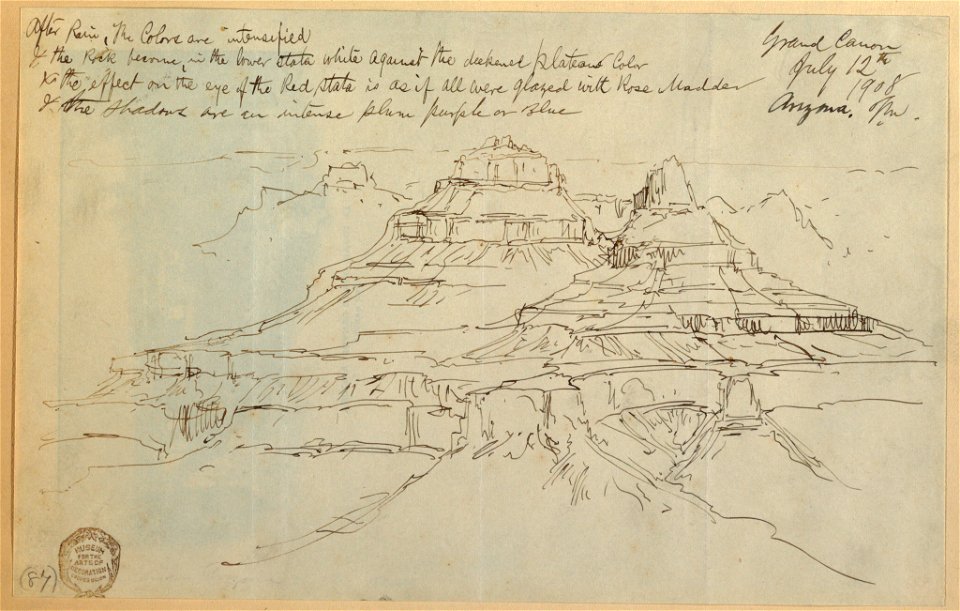 After Rain, the Colors are intensified
& the Rock become, in the lower stata white against the deekened plateau Color
& the effect on the eye of the Red stata is as if all were glazed with Rose Madder
& the shadows are an intense plum purple or blue
Grand Canon
July 12th
1908
Arizona.
MUSEUM
FOR THE
ARTS OF
DECORATION
COOPER UNION
(87)